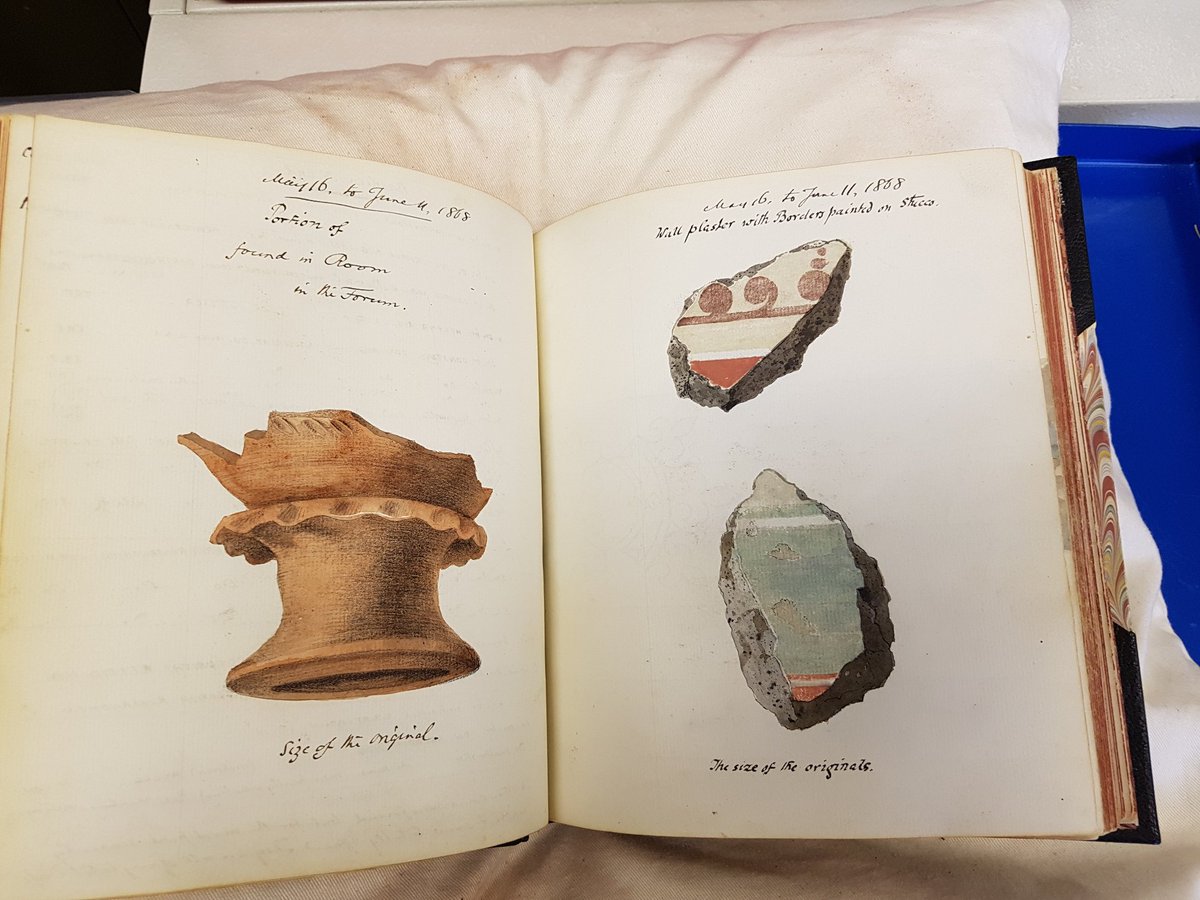 May 16, to June 11, 1868
Portion of
found in Room
in the Forum.
Size of the original.
May 16, to June 11, 1868
Wall plaster with Borders painted on Stucco.
The size of the originals.